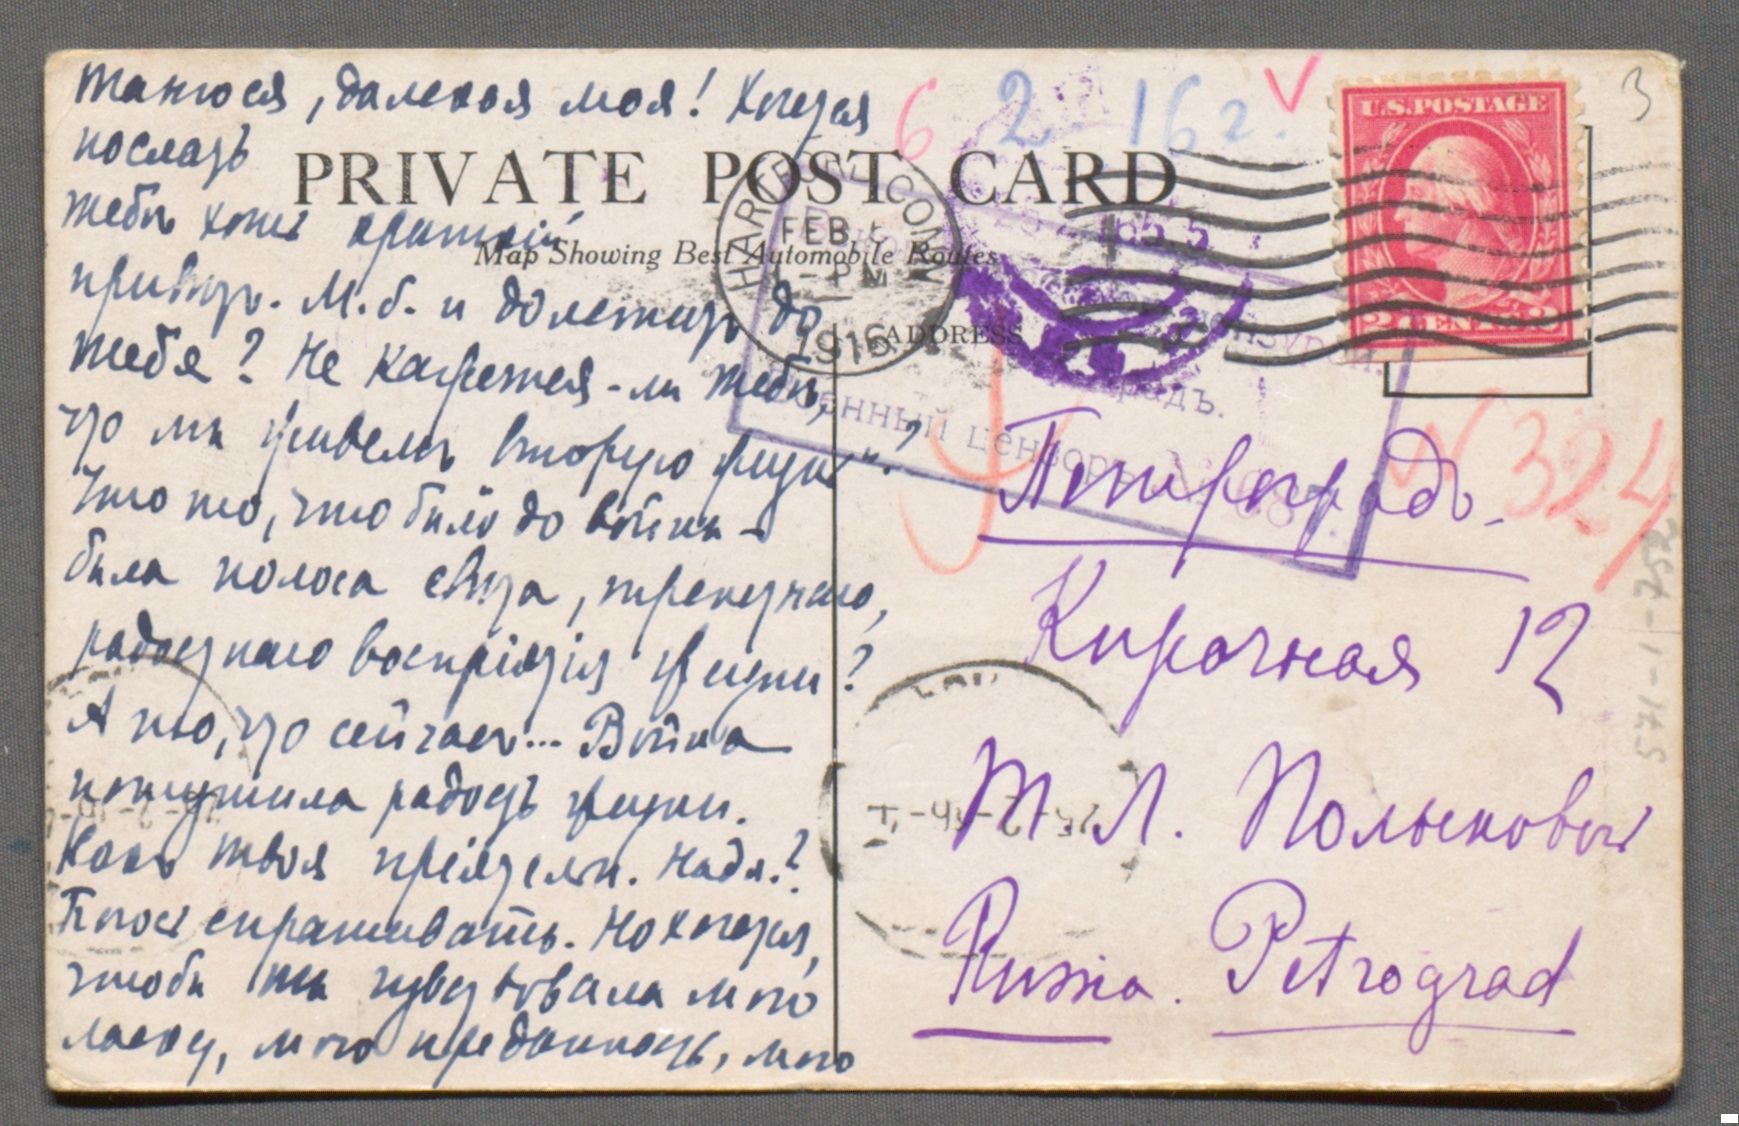 Танюся, далекая моя! Хочется
послать
тебѣ хоть краткій
привѣтъ. М.б. и долетитъ до
тебя? Не кажется-ли тебѣ,
что мы живемъ вторую жизнь?
Что то, что было до войны –
была полоса свѣта, трепетнаго,
радостнаго воспріятія жизни?
А то, что сейчасъ... Война
потушила радость жизни.
Какъ твоя пріятельн. Надя?
Боюсь спрашивать. Но хочется,
чтобы ты чувствовала мою
ласку, мою преданность, мою
PRIVATE POST CARD
Map Showing Best Automobile Routes
ADDRESS
6 2 16 г. V
3
U.S.POSTAGE
2 CENTS 2
HARTFORD, CONN.
FEB
PM
1916
Военный цензоръ
N 324
Петроградъ.
Кирочная 12
Т Л. Полыновой
Russia. Petrograd
571-1-752